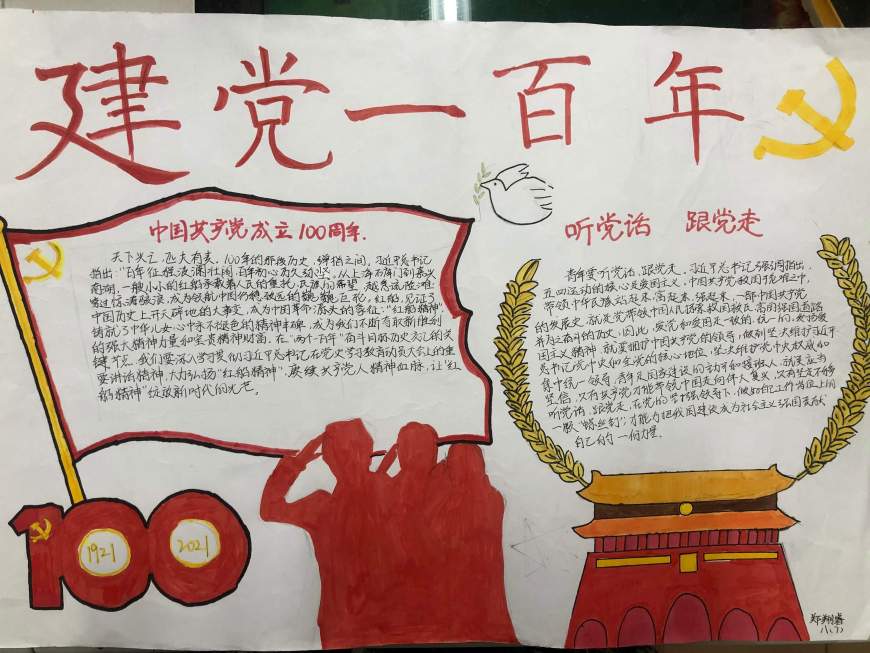 建党一百年
中国共产党成立100周年.
天下兴亡,匹夫有责。100年的那段历史,弹指之间。习近平总书记
指出:"百年征程波澜壮阔,百年初心历久弥坚。从上海石库门到嘉兴
南湖,一艘小小的红船承载着人民的重托、民族的希望,越过急流险滩,
穿过惊涛骇浪,成为领航中国行稳致远的巍巍巨轮。红船,见证了
中国历史上开天辟地的大事变,成为中国革命源头的象征。"红船精神"
铸就了中华儿女心中永不褪色的精神丰碑,成为我们不断夺取新胜利
的强大精神力量和宝贵精神财富。在"两个一百年"奋斗目标历史交汇的关
键节点,我们要深入学习贯彻习近平总书记在党史学习教育动员大会上的重
要讲话精神,大力弘扬"红船精神",赓续共产党人精神血脉,让"红
船精神"绽放新时代的光芒。
听党话 跟党走
青年要听党话,跟党走。习近平总书记强调指出,
五四运动的核心是爱国主义,中国共产党救国于危难之中,
带领中华民族站起来、富起来、强起来,一部中国共产党
的发展史,就是党带领中国人民探索救国救民、富国强国道路
并为之奋斗的历史,因此,爱党和爱国是一致的、统一的。要弘扬爱
国主义精神,就要拥护中国共产党的领导,做到坚决维护习近平
总书记党中央和全党的核心地位,坚决维护党中央权威和
集中统一领导。青年是国家建设的主力和接班人,就是应当
坚信,只有共产党才能带领中国走向伟大复兴,只有坚定不移
听党话、跟党走,在党的坚强领导下,做好自己工作岗位上的
一颗"螺丝钉",才能为把我国建设成为社会主义强国贡献
自己的一份力量。
100
1921
2021